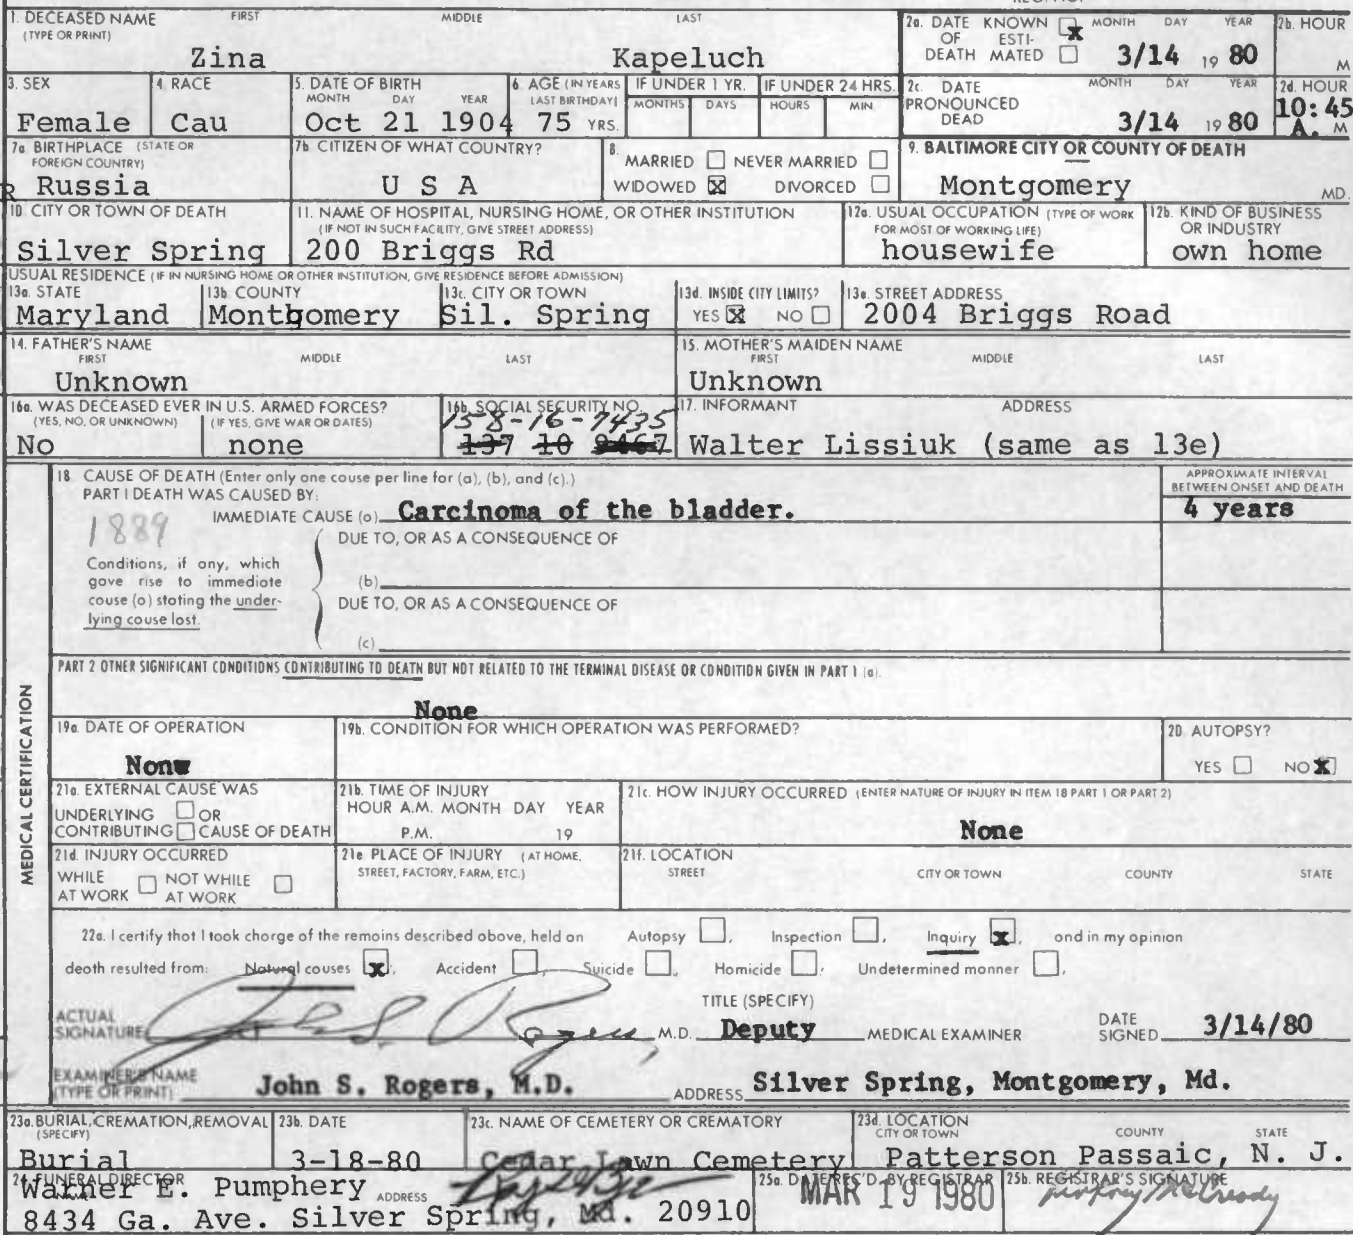 1. DECEASED NAME FIRST MIDDLE LAST
(TYPE OR PRINT)
Zina Kapeluch
2a. DATE KNOWN x MONTH DAY YEAR
OF ESTI-
DEATH MATED 3/14 19 80
2b. HOUR
M
3. SEX
Female
4. RACE
Cau
5. DATE OF BIRTH
MONTH DAY YEAR
Oct 21 1904
6. AGE (IN YEARS
LAST BIRTHDAY)
75 YRS.
IF UNDER 1 YR.
MONTHS DAYS
IF UNDER 24 HRS.
HOURS MIN.
2c. DATE MONTH DAY YEAR
PRONOUNCED
DEAD 3/14 19 80
2d. HOUR
10:45
A. M
7a BIRTHPLACE (STATE OR
FOREIGN COUNTRY)
R Russia
7b. CITIZEN OF WHAT COUNTRY?
U S A
8.
MARRIED NEVER MARRIED
WIDOWED X DIVORCED
9. BALTIMORE CITY OR COUNTY OF DEATH
Montgomery MD.
10. CITY OR TOWN OF DEATH
Silver Spring
11. NAME OF HOSPITAL, NURSING HOME, OR OTHER INSTITUTION
(IF NOT IN SUCH FACILITY, GIVE STREET ADDRESS)
200 Briggs Rd
12a. USUAL OCCUPATION (TYPE OF WORK
FOR MOST OF WORKING LIFE)
housewife
12b. KIND OF BUSINESS
OR INDUSTRY
own home
USUAL RESIDENCE (IF IN NURSING HOME OR OTHER INSTITUTION, GIVE RESIDENCE BEFORE ADMISSION)
13a. STATE
Maryland
13b. COUNTY
Montgomery
13c. CITY OR TOWN
Sil. Spring
13d. INSIDE CITY LIMITS?
YES X NO
13e. STREET ADDRESS
2004 Briggs Road
14. FATHER'S NAME
FIRST MIDDLE LAST
Unknown
15. MOTHER'S MAIDEN NAME
FIRST MIDDLE LAST
Unknown
16a. WAS DECEASED EVER IN U.S. ARMED FORCES?
(YES, NO, OR UNKNOWN) (IF YES, GIVE WAR OR DATES)
No none
16b. SOCIAL SECURITY NO.
158-16-7435
137 10 9467
17. INFORMANT ADDRESS
Walter Lissiuk (same as 13e)
MEDICAL CERTIFICATION
18. CAUSE OF DEATH (Enter only one cause per line for (a), (b), and (c).)
PART I DEATH WAS CAUSED BY:
IMMEDIATE CAUSE (a) Carcinoma of the bladder.
APPROXIMATE INTERVAL
BETWEEN ONSET AND DEATH
4 years
1889
DUE TO, OR AS A CONSEQUENCE OF
Conditions, if any, which
gave rise to immediate
cause (a) stating the under-
lying cause last.
(b)
DUE TO, OR AS A CONSEQUENCE OF
(c)
PART 2 OTHER SIGNIFICANT CONDITIONS CONTRIBUTING TO DEATH BUT NOT RELATED TO THE TERMINAL DISEASE OR CONDITION GIVEN IN PART 1 (a).
None
19a. DATE OF OPERATION
None
19b. CONDITION FOR WHICH OPERATION WAS PERFORMED?
20. AUTOPSY?
YES NO X
21a. EXTERNAL CAUSE WAS
UNDERLYING OR
CONTRIBUTING CAUSE OF DEATH
21b. TIME OF INJURY
HOUR A.M. MONTH DAY YEAR
P.M. 19
21c. HOW INJURY OCCURRED (ENTER NATURE OF INJURY IN ITEM 18 PART 1 OR PART 2)
None
21d. INJURY OCCURRED
WHILE NOT WHILE
AT WORK AT WORK
21e PLACE OF INJURY (AT HOME,
STREET, FACTORY, FARM, ETC.)
21f. LOCATION
STREET CITY OR TOWN COUNTY STATE
22a. I certify that I took charge of the remains described above, held on Autopsy , Inspection , Inquiry x , and in my opinion
death resulted from: Natural causes x , Accident , Suicide , Homicide , Undetermined manner ,
ACTUAL
SIGNATURE John S. Rogers M.D.
TITLE (SPECIFY)
Deputy MEDICAL EXAMINER
DATE
SIGNED 3/14/80
EXAMINER'S NAME
(TYPE OR PRINT) John S. Rogers, M.D.
ADDRESS Silver Spring, Montgomery, Md.
23a. BURIAL, CREMATION, REMOVAL
(SPECIFY)
Burial
23b. DATE
3-18-80
23c. NAME OF CEMETERY OR CREMATORY
Cedar Lawn Cemetery
23d. LOCATION
CITY OR TOWN COUNTY STATE
Patterson Passaic, N. J.
24. FUNERAL DIRECTOR
Warner E. Pumphery ADDRESS
8434 Ga. Ave. Silver Spring, Md. 20910
25a. DATE REC'D. BY REGISTRAR
MAR 19 1980
25b. REGISTRAR'S SIGNATURE